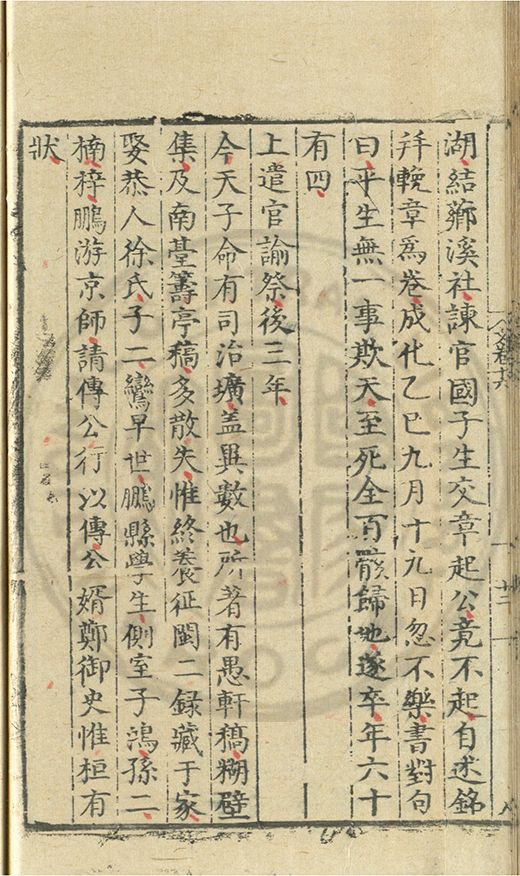 湖結薌溪社諫官國子生交章起公竟不起自述銘
并輓章為卷成化乙巳九月十九日忽不樂書對句
曰平生無一事欺天至死全百骸歸地遂卒年六十
有四
上遣官諭祭後三年
今天子命有司治壙盖異數也所著有愚軒稿糊壁
集及南臺籌亭稿多散失惟終養征閩二錄藏于家
娶恭人徐氏子二鸞早世鵬縣學生側室子鴻孫二
楠梓鵬游京師請傳公行以傳公婿鄭御史惟桓有
狀